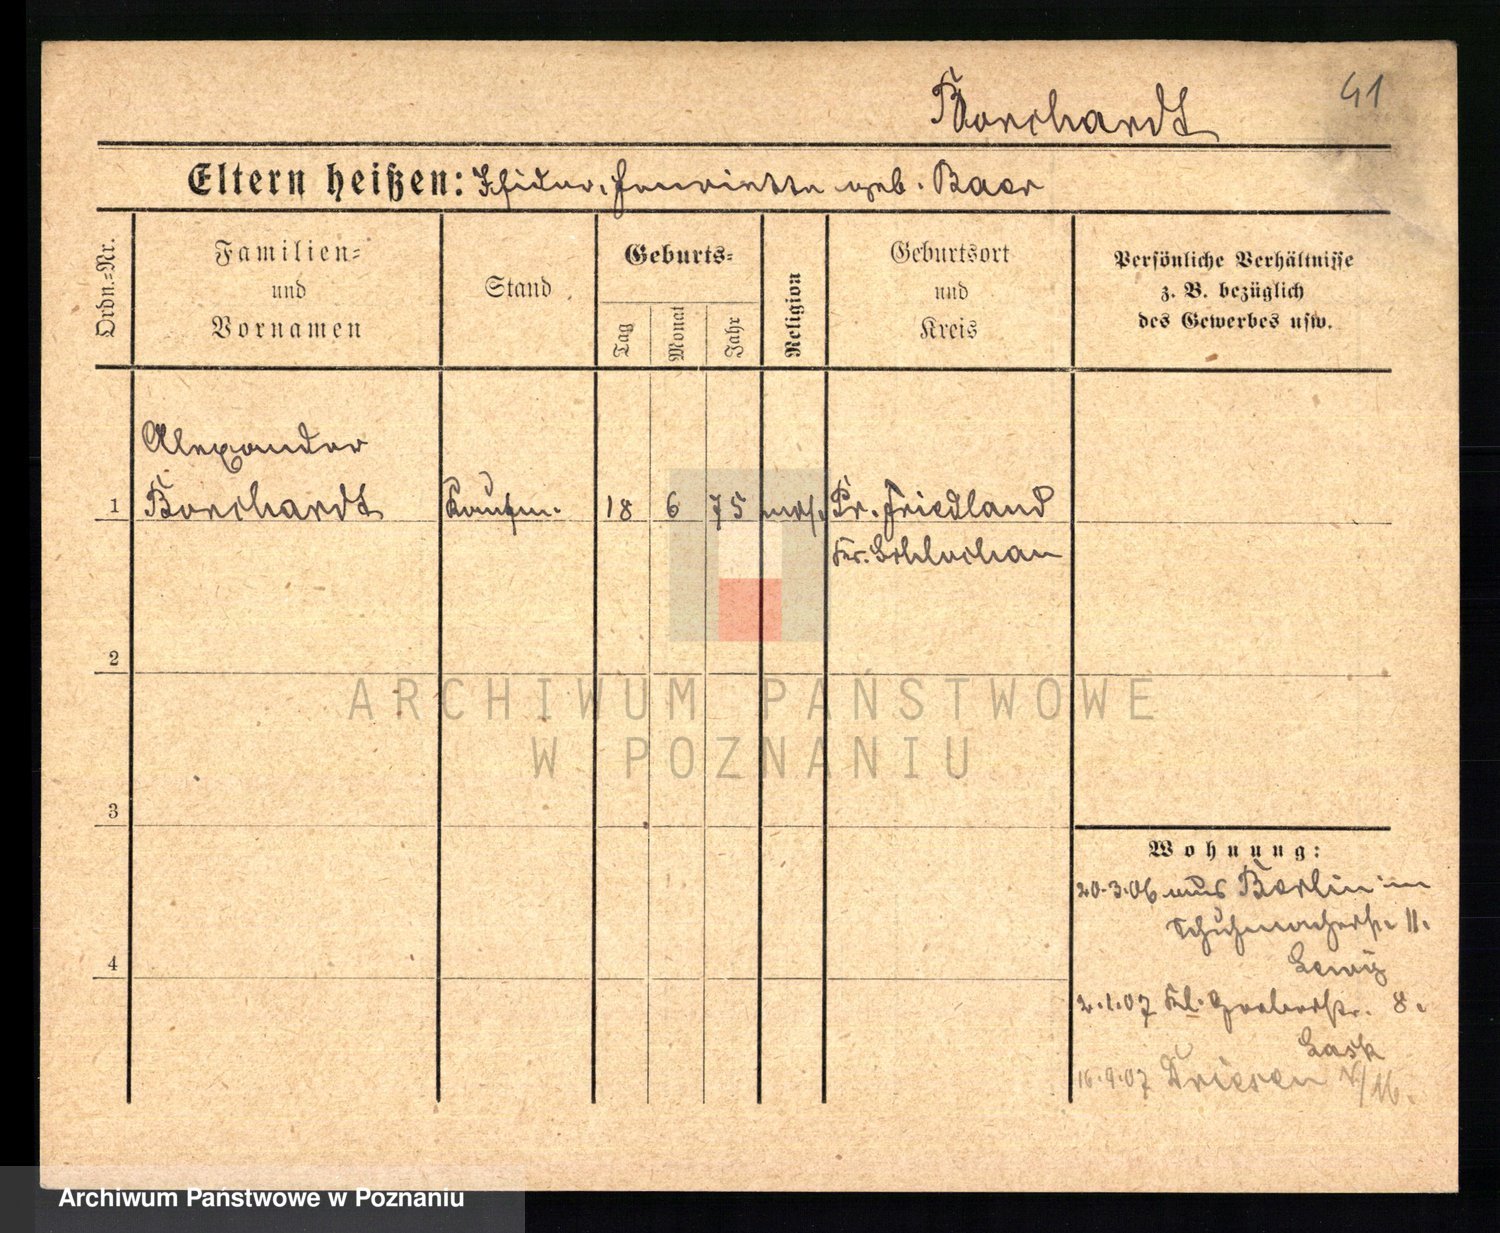 Borchardt
41
Eltern heißen: Isidor, Henriette geb. Baer
Ordn.=Nr.
Familien=
und
Vornamen
Stand
Geburts=
Tag
Monat
Jahr
Religion
Geburtsort
und
Kreis
Persönliche Verhältnisse
z. B. bezüglich
des Gewerbes usw.
Alexander
1 Borchardt Kaufm. 18 6 75 mos. Pr. Friedland
Kr. Schlochau
2
3
4
Wohnung:
20.3.06 aus Berlin in
Schuhmacherstr. 11.
Lewy
2.1.07 Kl. Gerberstr. 8.
Lask
16.9.07 Driesen N/M.
ARCHIWUM PAŃSTWOWE
W POZNANIU
Archiwum Państwowe w Poznaniu